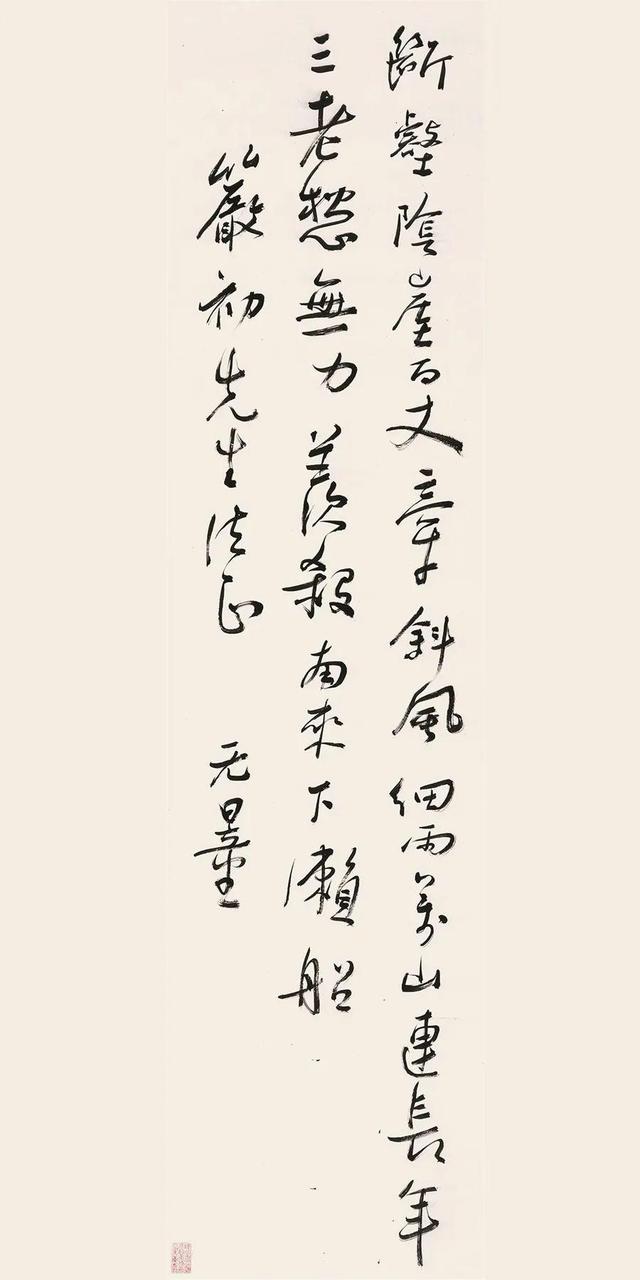 斷壑陰崖百丈牽斜風細雨萬山連長年
三老愁無力羨殺南來下瀨船
嚴初先生法正 无量